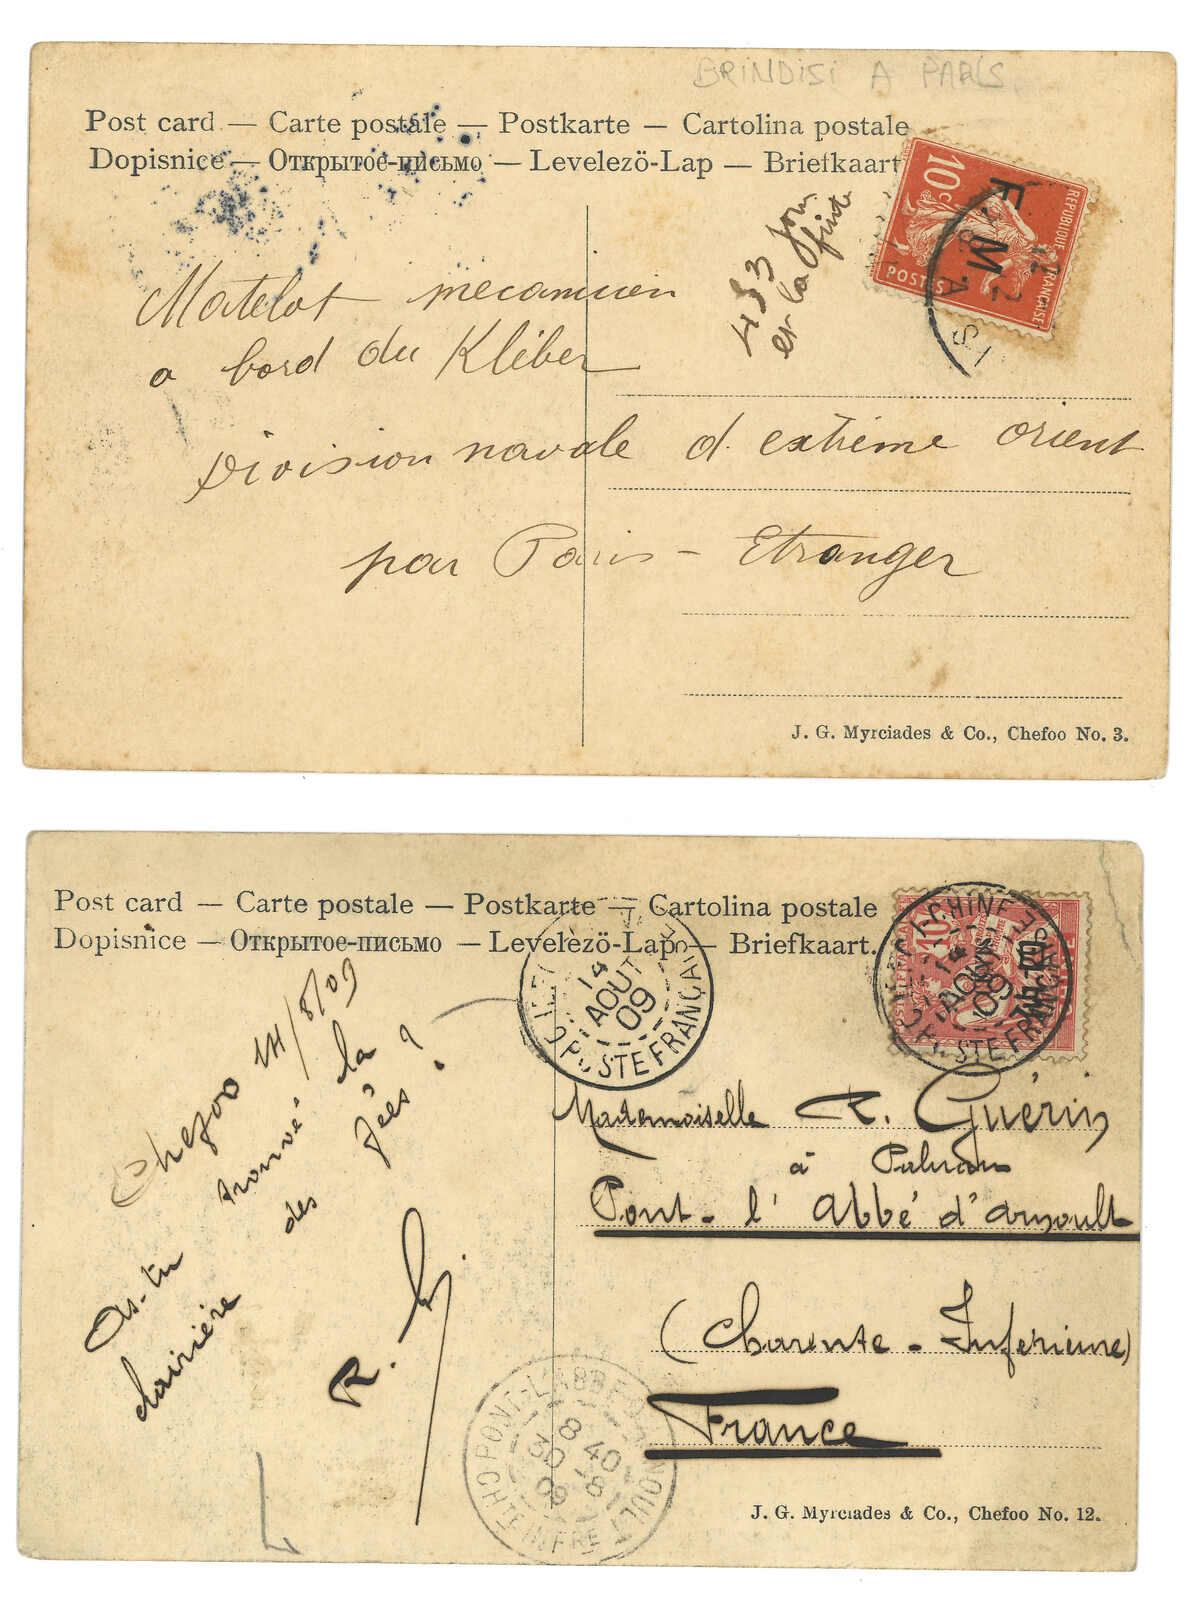 BRINDISI A PARIS
Post card — Carte postale — Postkarte — Cartolina postale
Dopisnice — Открытое-письмо — Levelezö-Lap — Briefkaart
10c
REPUBLIQUE FRANÇAISE
POSTES
F. M.
453 jour
et la finte
Matelot mecanicien
a bord du Kléber
Division navale d. extrême orient
par Paris - Etranger
J. G. Myrciades & Co., Chefoo No. 3.
Post card — Carte postale — Postkarte — Cartolina postale
Dopisnice — Открытое-письмо — Levelezö-Lap — Briefkaart.
14
AOUT
09
POSTE FRANÇAISE
CHINE
14
AOUT
09
POSTE FRANÇAISE
10
Chefoo 14/8/09
As-tu trouvé la
clairière des fées?
R. G.
Mademoiselle R. Guérin
à
Pont-l'Abbé d'Arnoult
(Charente-Inferieure)
France
PONT-L'ABBÉ-D'ARNOULT
8 40
30 -8
09
CHTE INFRE
J. G. Myrciades & Co., Chefoo No. 12.